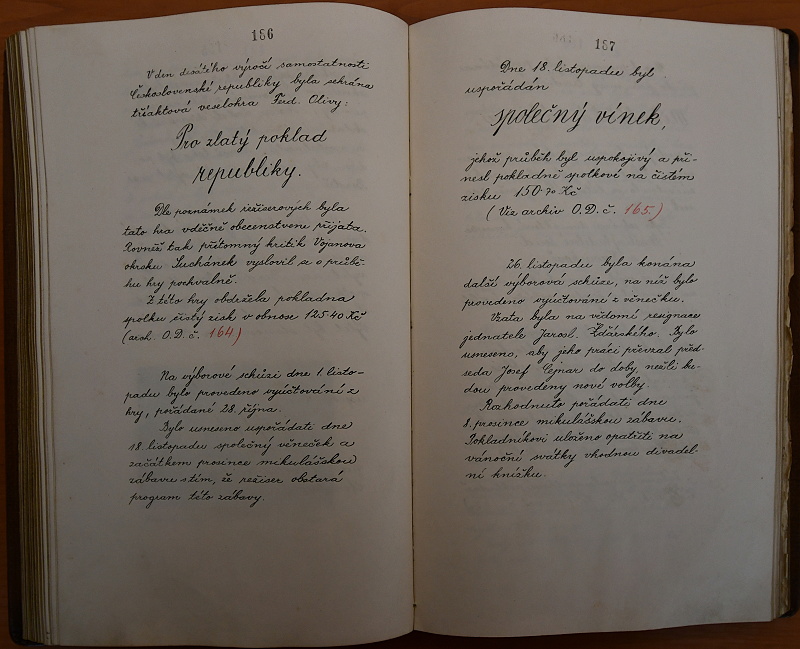 186
V den desátého výročí samostatnosti
Československé republiky byla sehrána
tříaktová veselohra Ferd. Olivy:
Pro zlatý poklad
republiky.
Dle poznámek režiserových byla
tato hra vděčně obecenstvem přijata.
Rovněž tak přítomný kritik Vojanova
okrsku Suchánek vyslovil se o průbě-
hu hry pochvalně.
Z této hry obdržela pokladna
spolku čistý zisk v obnose 125·40 Kč
(arch. O.D.č. 164.)
Na výborové schůzi dne 1. listo-
padu bylo provedeno vyúčtování z
hry, pořádané 28. října.
Bylo usneseno uspořádati dne
18. listopadu společný věneček a
začátkem prosince mikulášskou
zábavu s tím, že režiser obstará
program této zábavy.
187
Dne 18. listopadu byl
uspořádán
společný vínek,
jehož průběh byl uspokojivý a při-
nesl pokladně spolkové na čistém
zisku 150·70 Kč
(Viz archiv O.D.č. 165.)
26. listopadu byla konána
další výborová schůze, na níž bylo
provedeno vyúčtování z věnečku.
Vzata byla na vědomí resignace
jednatele Jarosl. Žďárského. Bylo
usneseno, aby jeho práci převzal před-
seda Josef Cejnar do doby, nežli bu-
dou provedeny nové volby.
Rozhodnuto pořádati dne
8. prosince mikulášskou zábavu.
Pokladníkovi uloženo opatřiti na
vánoční svátky vhodnou divadel-
ní knížku.